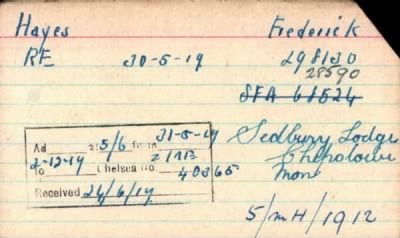 Hayes Frederick
RE 30-5-19 298130
28590
SFA 68524
Ad 25/6 from 31-5-19
2-12-19 21112
To Chelsea No. 40365
Received 24/6/19
Sedbury Lodge
Chepstow
Mon
5/MH/1912